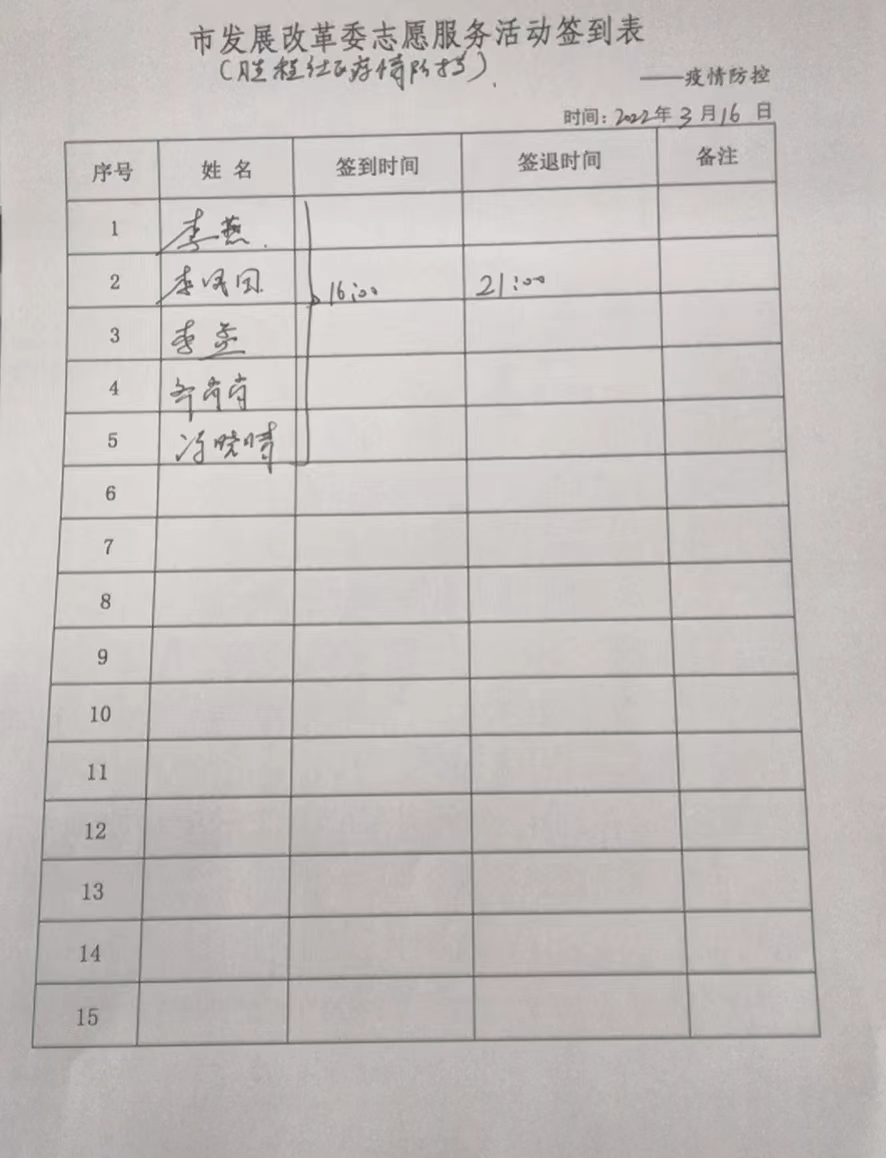 市发展改革委志愿服务活动签到表
(胜程社区疫情防控)
——疫情防控
时间：2022年3月16日
序号 姓名 签到时间 签退时间 备注
1 李燕
2 李凤国 16:00 21:00
3 李
4 肖肖
5 冯晓晴
6
7
8
9
10
11
12
13
14
15